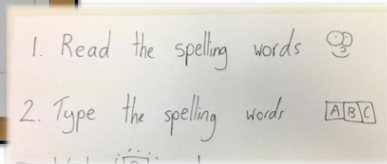 1. Read the spelling words
2. Type the spelling words ABC